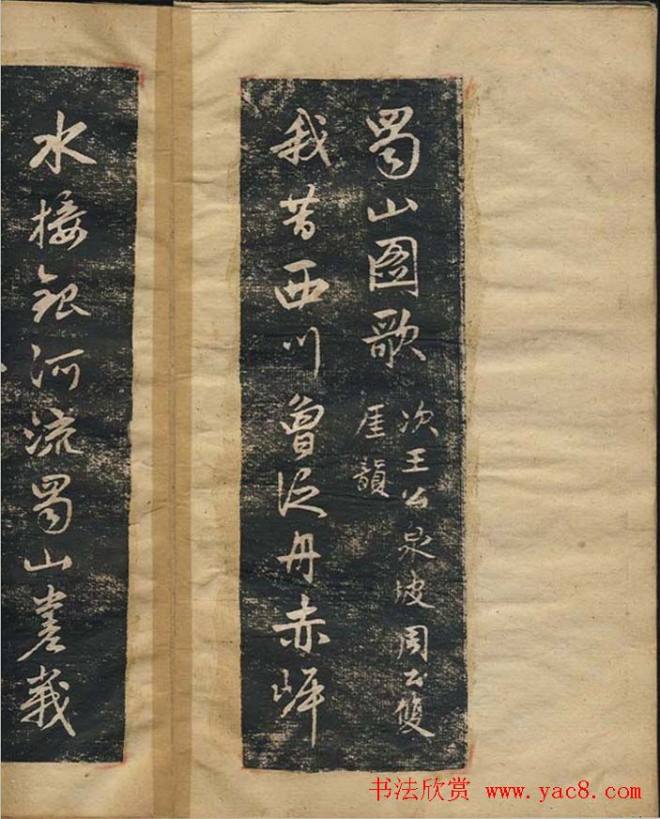 蜀山圖歌
次王公泉坡周公雙
厓韻
我昔西川曾泛舟赤岬
水接銀河流蜀山嵳峩
书法欣赏 www.yac8.com